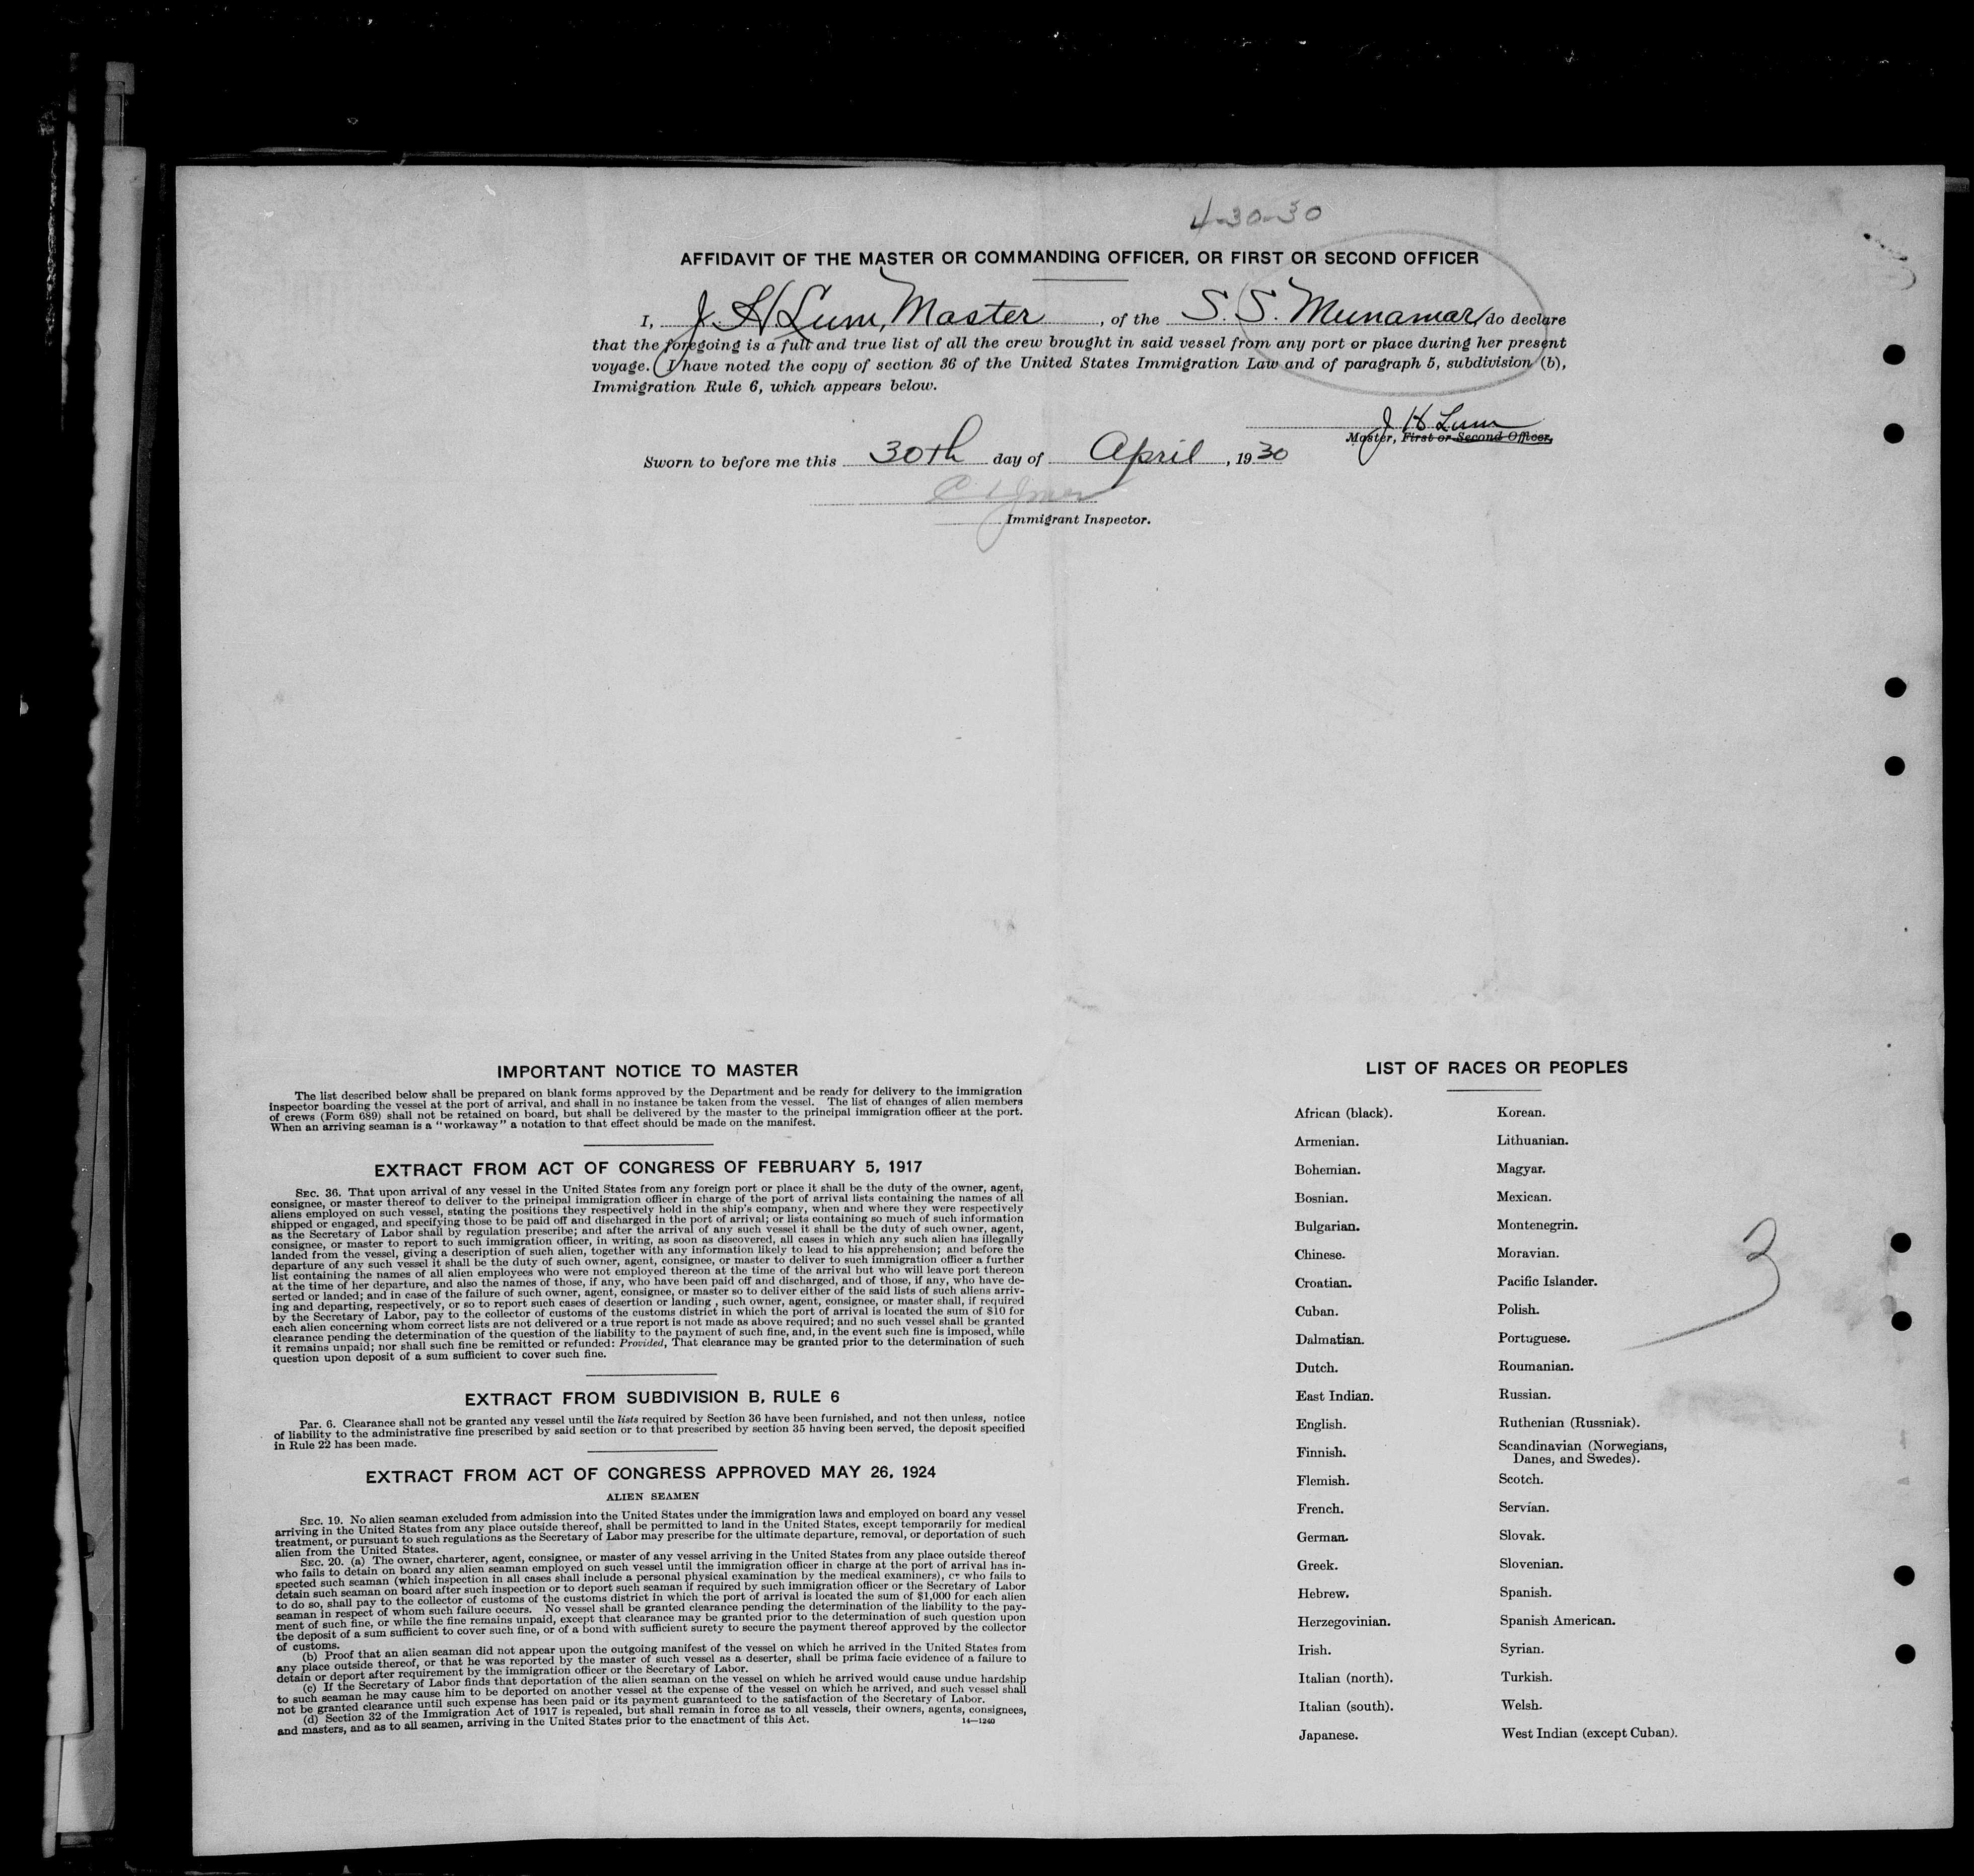 4-30-30
AFFIDAVIT OF THE MASTER OR COMMANDING OFFICER, OR FIRST OR SECOND OFFICER
I, J. H Lum, Master, of the S. S. Munamar, do declare
that the foregoing is a full and true list of all the crew brought in said vessel from any port or place during her present
voyage. I have noted the copy of section 36 of the United States Immigration Law and of paragraph 5, subdivision (b),
Immigration Rule 6, which appears below.
J H Lum
Master, First or Second Officer.
Sworn to before me this 30th day of April, 1930
Immigrant Inspector.
IMPORTANT NOTICE TO MASTER
The list described below shall be prepared on blank forms approved by the Department and be ready for delivery to the immigration
inspector boarding the vessel at the port of arrival, and shall in no instance be taken from the vessel. The list of changes of alien members
of crews (Form 689) shall not be retained on board, but shall be delivered by the master to the principal immigration officer at the port.
When an arriving seaman is a "workaway" a notation to that effect should be made on the manifest.
EXTRACT FROM ACT OF CONGRESS OF FEBRUARY 5, 1917
SEC. 36. That upon arrival of any vessel in the United States from any foreign port or place it shall be the duty of the owner, agent,
consignee, or master thereof to deliver to the principal immigration officer in charge of the port of arrival lists containing the names of all
aliens employed on such vessel, stating the positions they respectively hold in the ship's company, when and where they were respectively
shipped or engaged, and specifying those to be paid off and discharged in the port of arrival; or lists containing so much of such information
as the Secretary of Labor shall by regulation prescribe; and after the arrival of any such vessel it shall be the duty of such owner, agent,
consignee, or master to report to such immigration officer, in writing, as soon as discovered, all cases in which any such alien has illegally
landed from the vessel, giving a description of such alien, together with any information likely to lead to his apprehension; and before the
departure of any such vessel it shall be the duty of such owner, agent, consignee, or master to deliver to such immigration officer a further
list containing the names of all alien employees who were not employed thereon at the time of the arrival but who will leave port thereon
at the time of her departure, and also the names of those, if any, who have been paid off and discharged, and of those, if any, who have de-
serted or landed; and in case of the failure of such owner, agent, consignee, or master so to deliver either of the said lists of such aliens arriv-
ing and departing, respectively, or so to report such cases of desertion or landing , such owner, agent, consignee, or master shall, if required
by the Secretary of Labor, pay to the collector of customs of the customs district in which the port of arrival is located the sum of $10 for
each alien concerning whom correct lists are not delivered or a true report is not made as above required; and no such vessel shall be granted
clearance pending the determination of the question of the liability to the payment of such fine, and, in the event such fine is imposed, while
it remains unpaid; nor shall such fine be remitted or refunded: Provided, That clearance may be granted prior to the determination of such
question upon deposit of a sum sufficient to cover such fine.
EXTRACT FROM SUBDIVISION B, RULE 6
Par. 6. Clearance shall not be granted any vessel until the lists required by Section 36 have been furnished, and not then unless, notice
of liability to the administrative fine prescribed by said section or to that prescribed by section 35 having been served, the deposit specified
in Rule 22 has been made.
EXTRACT FROM ACT OF CONGRESS APPROVED MAY 26, 1924
ALIEN SEAMEN
SEC. 19. No alien seaman excluded from admission into the United States under the immigration laws and employed on board any vessel
arriving in the United States from any place outside thereof, shall be permitted to land in the United States, except temporarily for medical
treatment, or pursuant to such regulations as the Secretary of Labor may prescribe for the ultimate departure, removal, or deportation of such
alien from the United States.
SEC. 20. (a) The owner, charterer, agent, consignee, or master of any vessel arriving in the United States from any place outside thereof
who fails to detain on board any alien seaman employed on such vessel until the immigration officer in charge at the port of arrival has in-
spected such seaman (which inspection in all cases shall include a personal physical examination by the medical examiners), or who fails to
detain such seaman on board after such inspection or to deport such seaman if required by such immigration officer or the Secretary of Labor
to do so, shall pay to the collector of customs of the customs district in which the port of arrival is located the sum of $1,000 for each alien
seaman in respect of whom such failure occurs. No vessel shall be granted clearance pending the determination of the liability to the pay-
ment of such fine, or while the fine remains unpaid, except that clearance may be granted prior to the determination of such question upon
the deposit of a sum sufficient to cover such fine, or of a bond with sufficient surety to secure the payment thereof approved by the collector
of customs.
(b) Proof that an alien seaman did not appear upon the outgoing manifest of the vessel on which he arrived in the United States from
any place outside thereof, or that he was reported by the master of such vessel as a deserter, shall be prima facie evidence of a failure to
detain or deport after requirement by the immigration officer or the Secretary of Labor.
(c) If the Secretary of Labor finds that deportation of the alien seaman on the vessel on which he arrived would cause undue hardship
to such seaman he may cause him to be deported on another vessel at the expense of the vessel on which he arrived, and such vessel shall
not be granted clearance until such expense has been paid or its payment guaranteed to the satisfaction of the Secretary of Labor.
(d) Section 32 of the Immigration Act of 1917 is repealed, but shall remain in force as to all vessels, their owners, agents, consignees,
and masters, and as to all seamen, arriving in the United States prior to the enactment of this Act.
14—1240
LIST OF RACES OR PEOPLES
African (black).
Armenian.
Bohemian.
Bosnian.
Bulgarian.
Chinese.
Croatian.
Cuban.
Dalmatian.
Dutch.
East Indian.
English.
Finnish.
Flemish.
French.
German.
Greek.
Hebrew.
Herzegovinian.
Irish.
Italian (north).
Italian (south).
Japanese.
Korean.
Lithuanian.
Magyar.
Mexican.
Montenegrin.
Moravian.
Pacific Islander.
Polish.
Portuguese.
Roumanian.
Russian.
Ruthenian (Russniak).
Scandinavian (Norwegians,
Danes, and Swedes).
Scotch.
Servian.
Slovak.
Slovenian.
Spanish.
Spanish American.
Syrian.
Turkish.
Welsh.
West Indian (except Cuban).
3